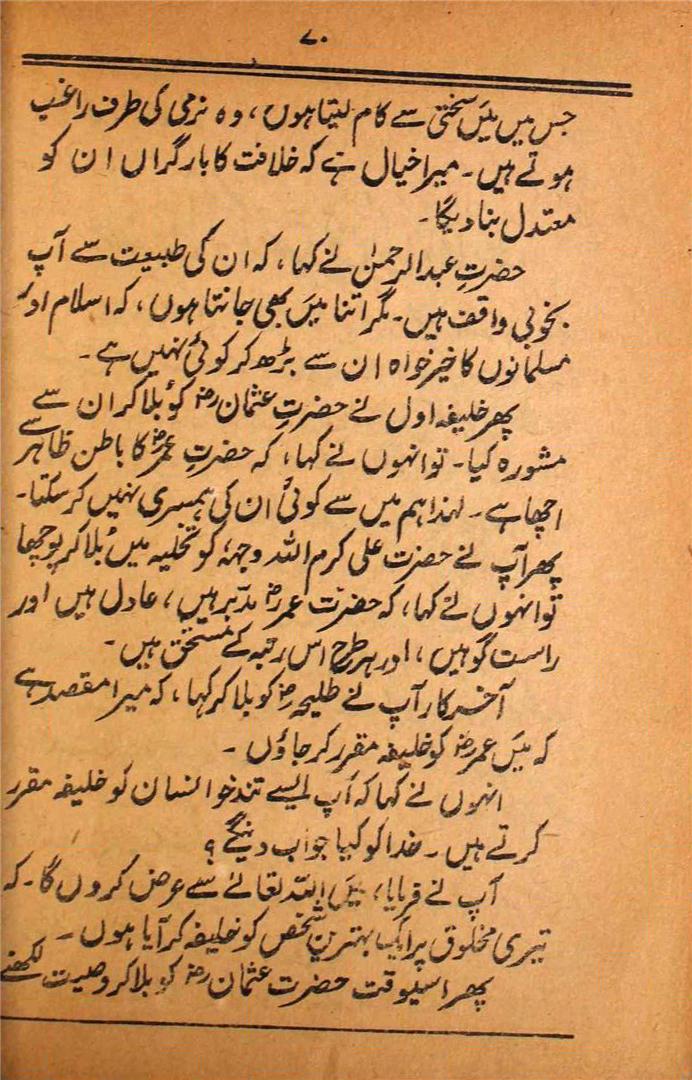 ۷۰
جس میں مَیں سختی سے کام لیتا ہوں، وہ نرمی کی طرف راغب
ہوتے ہیں۔ میرا خیال ہے کہ خلافت کا بارِ گراں ان کو
معتدل بنا دیگا۔
حضرتِ عبدالرحمنٰ نے کہا، کہ ان کی طبیعت سے آپ
بخوبی واقف ہیں۔ مگر اتنا مَیں بھی جانتا ہوں، کہ اسلام اور
مسلمانوں کا خیر خواہ ان سے بڑھ کر کوئی نہیں ہے۔
پھر خلیفہ اول نے حضرتِ عثمان رضؓ کو بُلا کر ان سے
مشورہ کیا۔ تو انہوں نے کہا، کہ حضرتِ عمرؓ کا باطن ظاہر سے
اچھا ہے۔ لہذا ہم میں سے کوئی ان کی ہمسری نہیں کر سکتا۔
پھر آپ نے حضرت علی کرم اللہ وجہہٗ کو تخلیہ میں بُلا کر پوچھا
تو انہوں نے کہا، کہ حضرت عمر رضؓ مدبّر ہیں، عادل ہیں اور
راست گو ہیں، اور ہر طرح اس رتبہ کے مستحق ہیں۔
آخر کار آپ نے طلیحہ رضؓ کو بلا کر کہا، کہ میرا مقصد ہے
کہ مَیں عمر رضؓ کو خلیفہ مقرر کر جاؤں۔
انہوں نے کہا کہ آپ ایسے تند خو انسان کو خلیفہ مقرر
کرتے ہیں۔ خدا کو کیا جواب دینگے؟
آپ نے فرمایا، مَیں اللہ تعالےٰ سے عرض کروں گا۔ کہ
تیری مخلوق پر ایک بہترین شخص کو خلیفہ کر آیا ہوں۔
پھر اسیوقت حضرت عثمان رضؓ کو بلا کر وصیت لکھنے